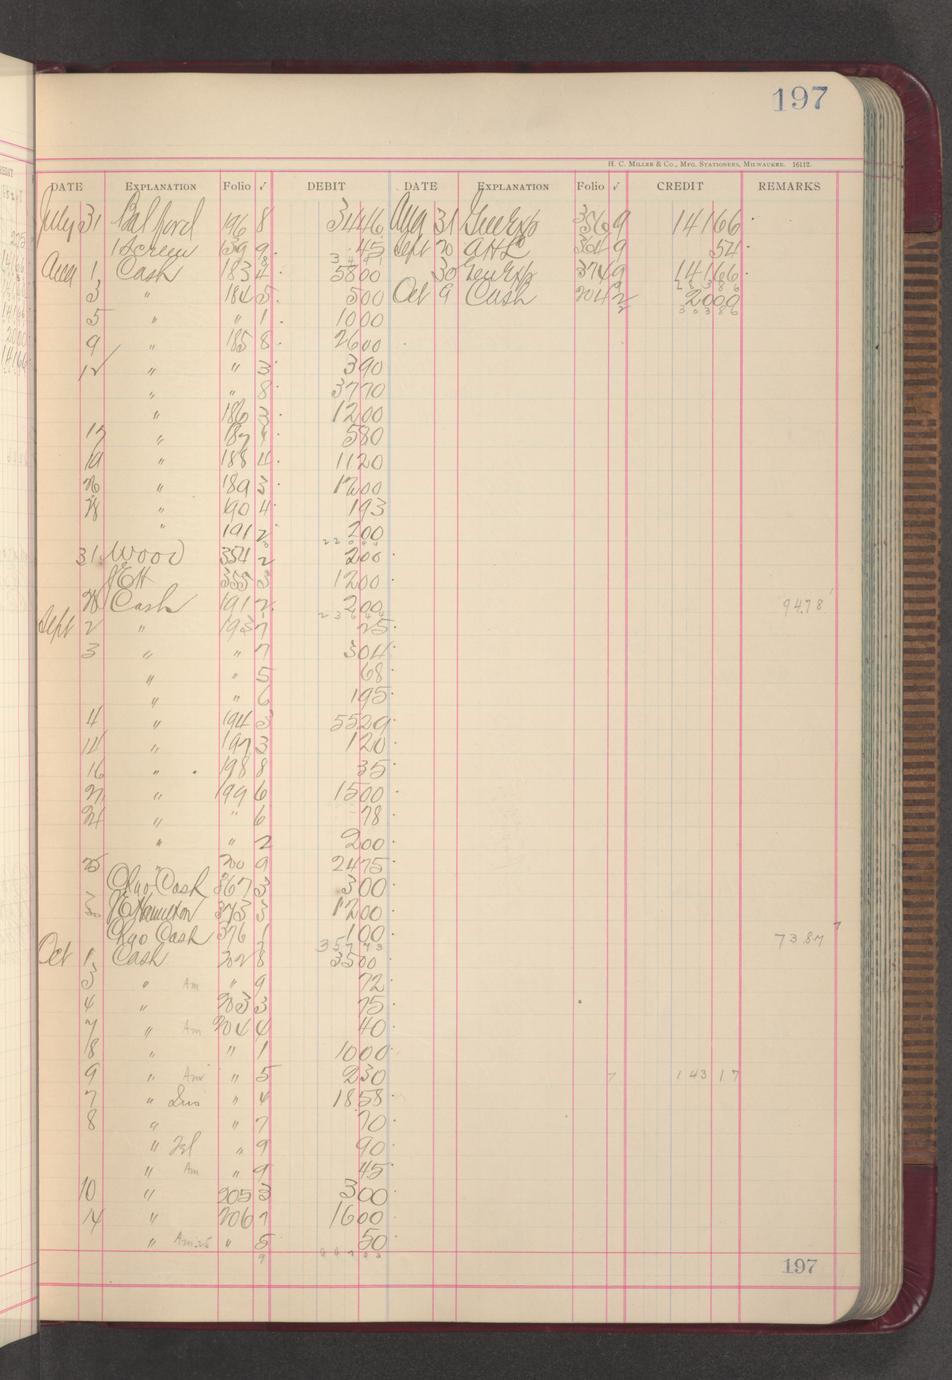 197
H. C. Miller & Co., Mfg. Stationers, Milwaukee. 16112.
DATE EXPLANATION Folio √ DEBIT DATE EXPLANATION Folio √ CREDIT REMARKS
July 31 Bal ford 196 8 3446 Aug 31 Gen Exp 356 9 14166
1 Screw 639 9 45 Sept 20 364 9 54
Aug 1 Cash 183 4 5800 30 Gen Exp 374 9 14166
3 " 184 5 500 Oct 9 Cash 204 2 2000
5 " " 1 1000 30386
9 " 185 8 2600
12 " " 3 390
" " 8 3770
" 186 3 1200
17 " 187 4 580
19 " 188 4 1120
26 " 189 3 1200
28 " 190 4 193
" 191 2 200
31 Wood 354 2 200
JEH 355 3 1200
28 Cash 191 2 200 9478
Sept 2 " 193 7 25
3 " " 7 304
" " 5 68
" " 6 195
4 " 194 3 5529
14 " 197 3 120
16 " 198 8 35
21 " 199 6 1500
24 " " 6 78
" " 2 200
25 " 200 9 2475
Chgo Cash 367 3 300
30 JE Hamilton 373 3 1200
Chgo Cash 376 1 100 7387
35793
Oct 1 Cash 202 8 3500
3 " Am " 9 72
4 " 203 3 75
7 " Am 204 4 40
8 " " 1 1000
9 " Am " 5 230 7 14317
7 " " 4 1858
8 " " 7 70
" Tel " 9 90
" Am " 9 45
10 " 205 3 300
14 " 206 7 1600
" Am " 5 50
197